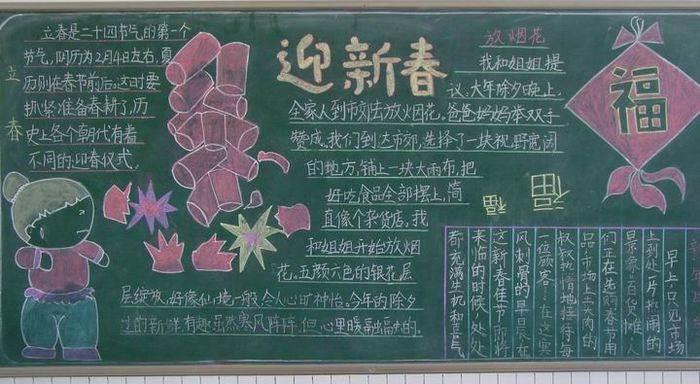 立春
立春是二十四节气的第一个
节气,阴历为2月4日左右,夏
历则在春节前后。这时要
抓紧准备春耕了,历
史上各个朝代有着
不同的迎春仪式。
迎新春
放烟花
我和姐姐提
议,大年除夕晚上,
全家人到市郊去放火烟花。爸爸妈妈举双手
赞成。我们到达市郊,选择了一块视野宽阔
的地方,铺上一块大雨布,把
好吃食品全部摆上,简
直像个杂货店,我
和姐姐开始放烟
花。五颜六色的银花层
层绽放,好像仙境一般,令人心旷神怡。今年的除夕
过的新鲜有趣,虽然寒风阵阵,但心里暖融融的。
福
福
福
早上,只见市场
上到处一片热闹的
景象,百货摊人
们正在选购春节用
品,市场上卖肉的
叔叔热情地招待每
一位顾客。在这寒
风刺骨的早晨,在
这新春佳节即将
来临的时候,处处
都充满生机和喜气